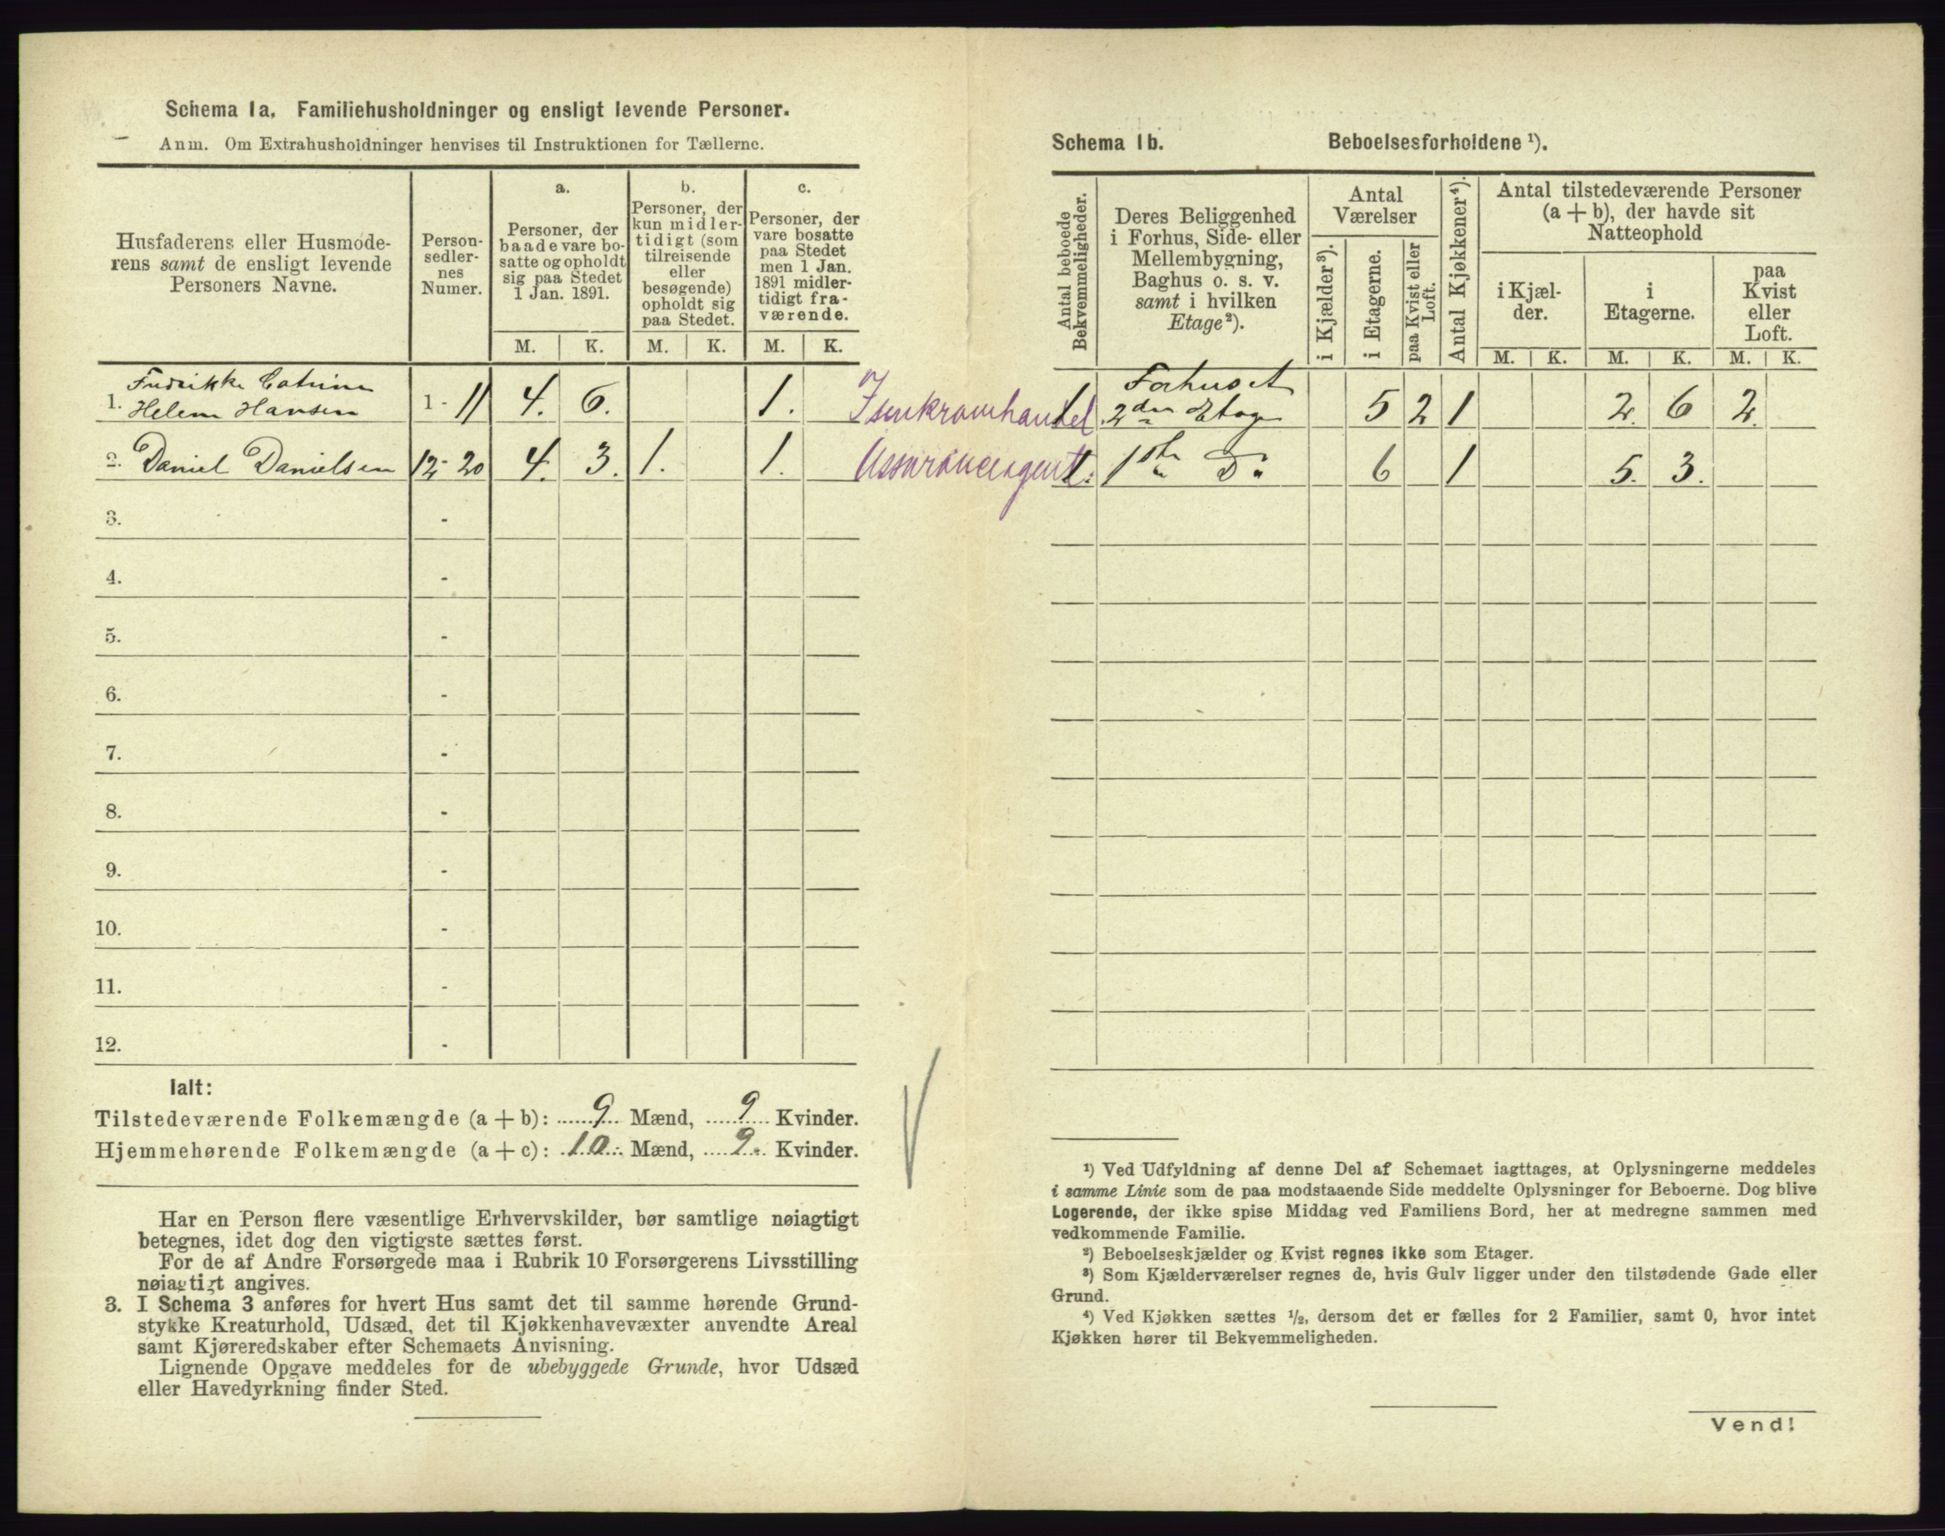 Schema 1a. Familiehusholdninger og ensligt levende Personer.
Anm. Om Extrahusholdninger henvises til Instruktionen for Tællerne.
Husfaderens eller Husmode-
rens samt de ensligt levende
Personers Navne.
Person-
sedler-
nes
Numer.
a.
Personer, der
baade vare bo-
satte og opholdt
sig paa Stedet
1 Jan. 1891.
b.
Personer, der
kun midler-
tidigt (som
tilreisende
eller
besøgende)
opholdt sig
paa Stedet.
c.
Personer, der
vare bosatte
paa Stedet
men 1 Jan.
1891 midler-
tidigt fra-
værende.
M. K. M. K. M. K.
Fredrikke Catrine
1. Helene Hansen 1 - 11 4. 6. 1. Isenkramhandel
2. Daniel Danielsen 12 - 20 4. 3. 1. 1. Assuranceagent
3. -
4. -
5. -
6. -
7. -
8. -
9. -
10. -
11. -
12. -
Ialt:
Tilstedeværende Folkemængde (a + b): 9 Mænd, 9 Kvinder.
Hjemmehørende Folkemængde (a + c): 10 Mænd, 9 Kvinder.
Har en Person flere væsentlige Erhvervskilder, bør samtlige nøiagtigt
betegnes, idet dog den vigtigste sættes først.
For de af Andre Forsørgede maa i Rubrik 10 Forsørgerens Livsstilling
nøiagtigt angives.
3. I Schema 3 anføres for hvert Hus samt det til samme hørende Grund-
stykke Kreaturhold, Udsæd, det til Kjøkkenhavevæxter anvendte Areal
samt Kjøreredskaber efter Schemaets Anvisning.
Lignende Opgave meddeles for de ubebyggede Grunde, hvor Udsæd
eller Havedyrkning finder Sted.
Schema 1b. Beboelsesforholdene ¹).
Antal beboede
Bekvemmeligheder.
Deres Beliggenhed
i Forhus, Side- eller
Mellembygning,
Baghus o. s. v.
samt i hvilken
Etage²).
Antal
Værelser
i Kjælder³).
i Etagerne.
paa Kvist eller
Loft.
Antal Kjøkkener⁴).
Antal tilstedeværende Personer
(a + b), der havde sit
Natteophold
i Kjæl-
der.
i
Etagerne.
paa
Kvist
eller
Loft.
M. K. M. K. M. K.
Forhuset
1 2den Etage 5 2 1 2. 6 2.
1. 1ste Do 6 1 5. 3.
¹) Ved Udfyldning af denne Del af Schemaet iagttages, at Oplysningerne meddeles
i samme Linie som de paa modstaaende Side meddelte Oplysninger for Beboerne. Dog blive
Logerende, der ikke spise Middag ved Familiens Bord, her at medregne sammen med
vedkommende Familie.
²) Beboelseskjælder og Kvist regnes ikke som Etager.
³) Som Kjælderværelser regnes de, hvis Gulv ligger under den tilstødende Gade eller
Grund.
⁴) Ved Kjøkken sættes ½, dersom det er fælles for 2 Familier, samt 0, hvor intet
Kjøkken hører til Bekvemmeligheden.
Vend!